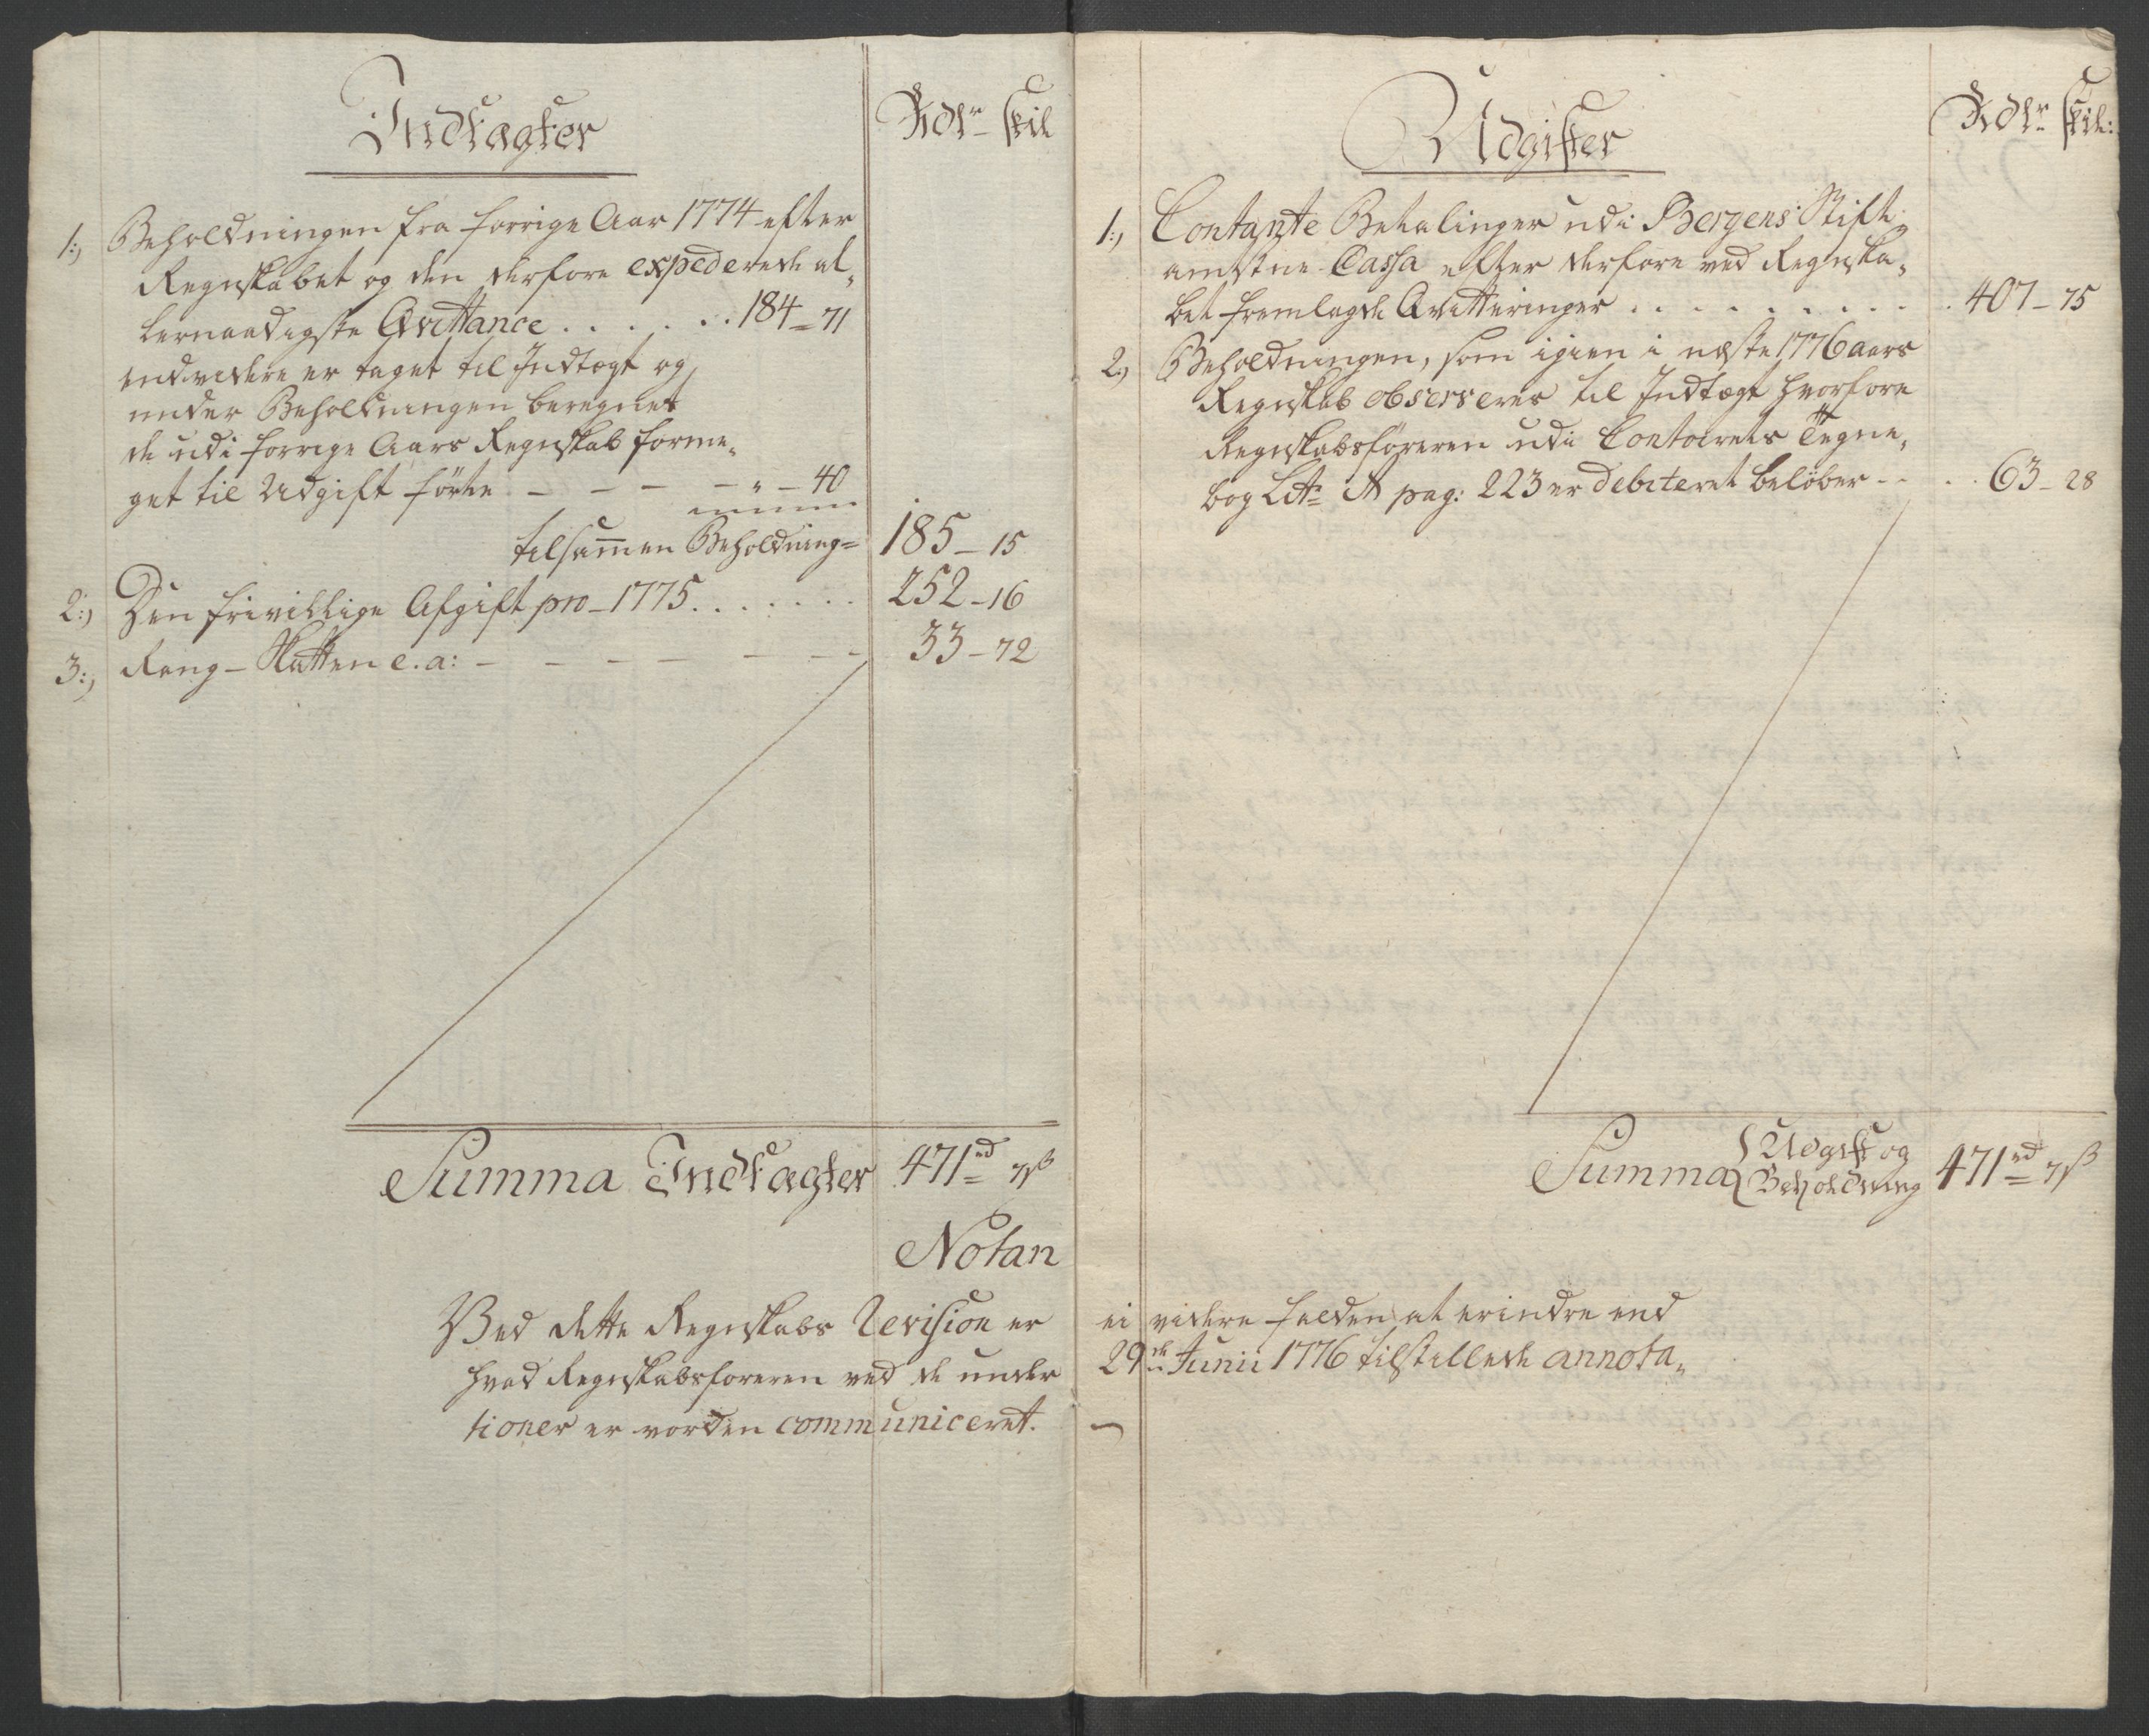 Indtægter
Rdlr skil
1:, Beholdningen fra forrige Aar 1774 efter
Regnskabet og den derfore expederede al„
lernaadigste Qvittance . . . . . . . 184 = 71
endvidere er taget til Indtægt og
under Beholdningen beregnet
de udi forrige Aars Regnskab forme„
get til Udgift förte - - - - " - 40
tilsam̅en Beholdning = 185 - 15
2:, Den frivillige Afgift pro - 1775 . . . . . . . 252 - 16
3:, Rang - Skatten e. a: - - - - - - - 33 - 72
Summa Indtægter 471 rd 7 ß
Udgifter
Rdlr skil:
1:, Contante Betalinger udi Bergens Stift„
amtstue Cassa efter derfore ved Regnska„
bet fremlagde Qvitteringer . . . . . . . . . . 407 - 75
2:, Beholdningen, som igien i næste 1776 aars
Regnskab observeres til Indtægt hvorfore
Regnskabsföreren udi Contoirets Tegne„
bog Litr A pag: 223 er debiteret beløber - - . . 63 - 28
Summa { Udgift og Beholdning 471 rd 7 ß
Notan
Ved dette Regnskabs Revision er ei videre falden at erindre end
hvad Regnskabsföreren ved de under 29de Junii 1776 tilstillede annota„
tioner er vorden communiceret. —